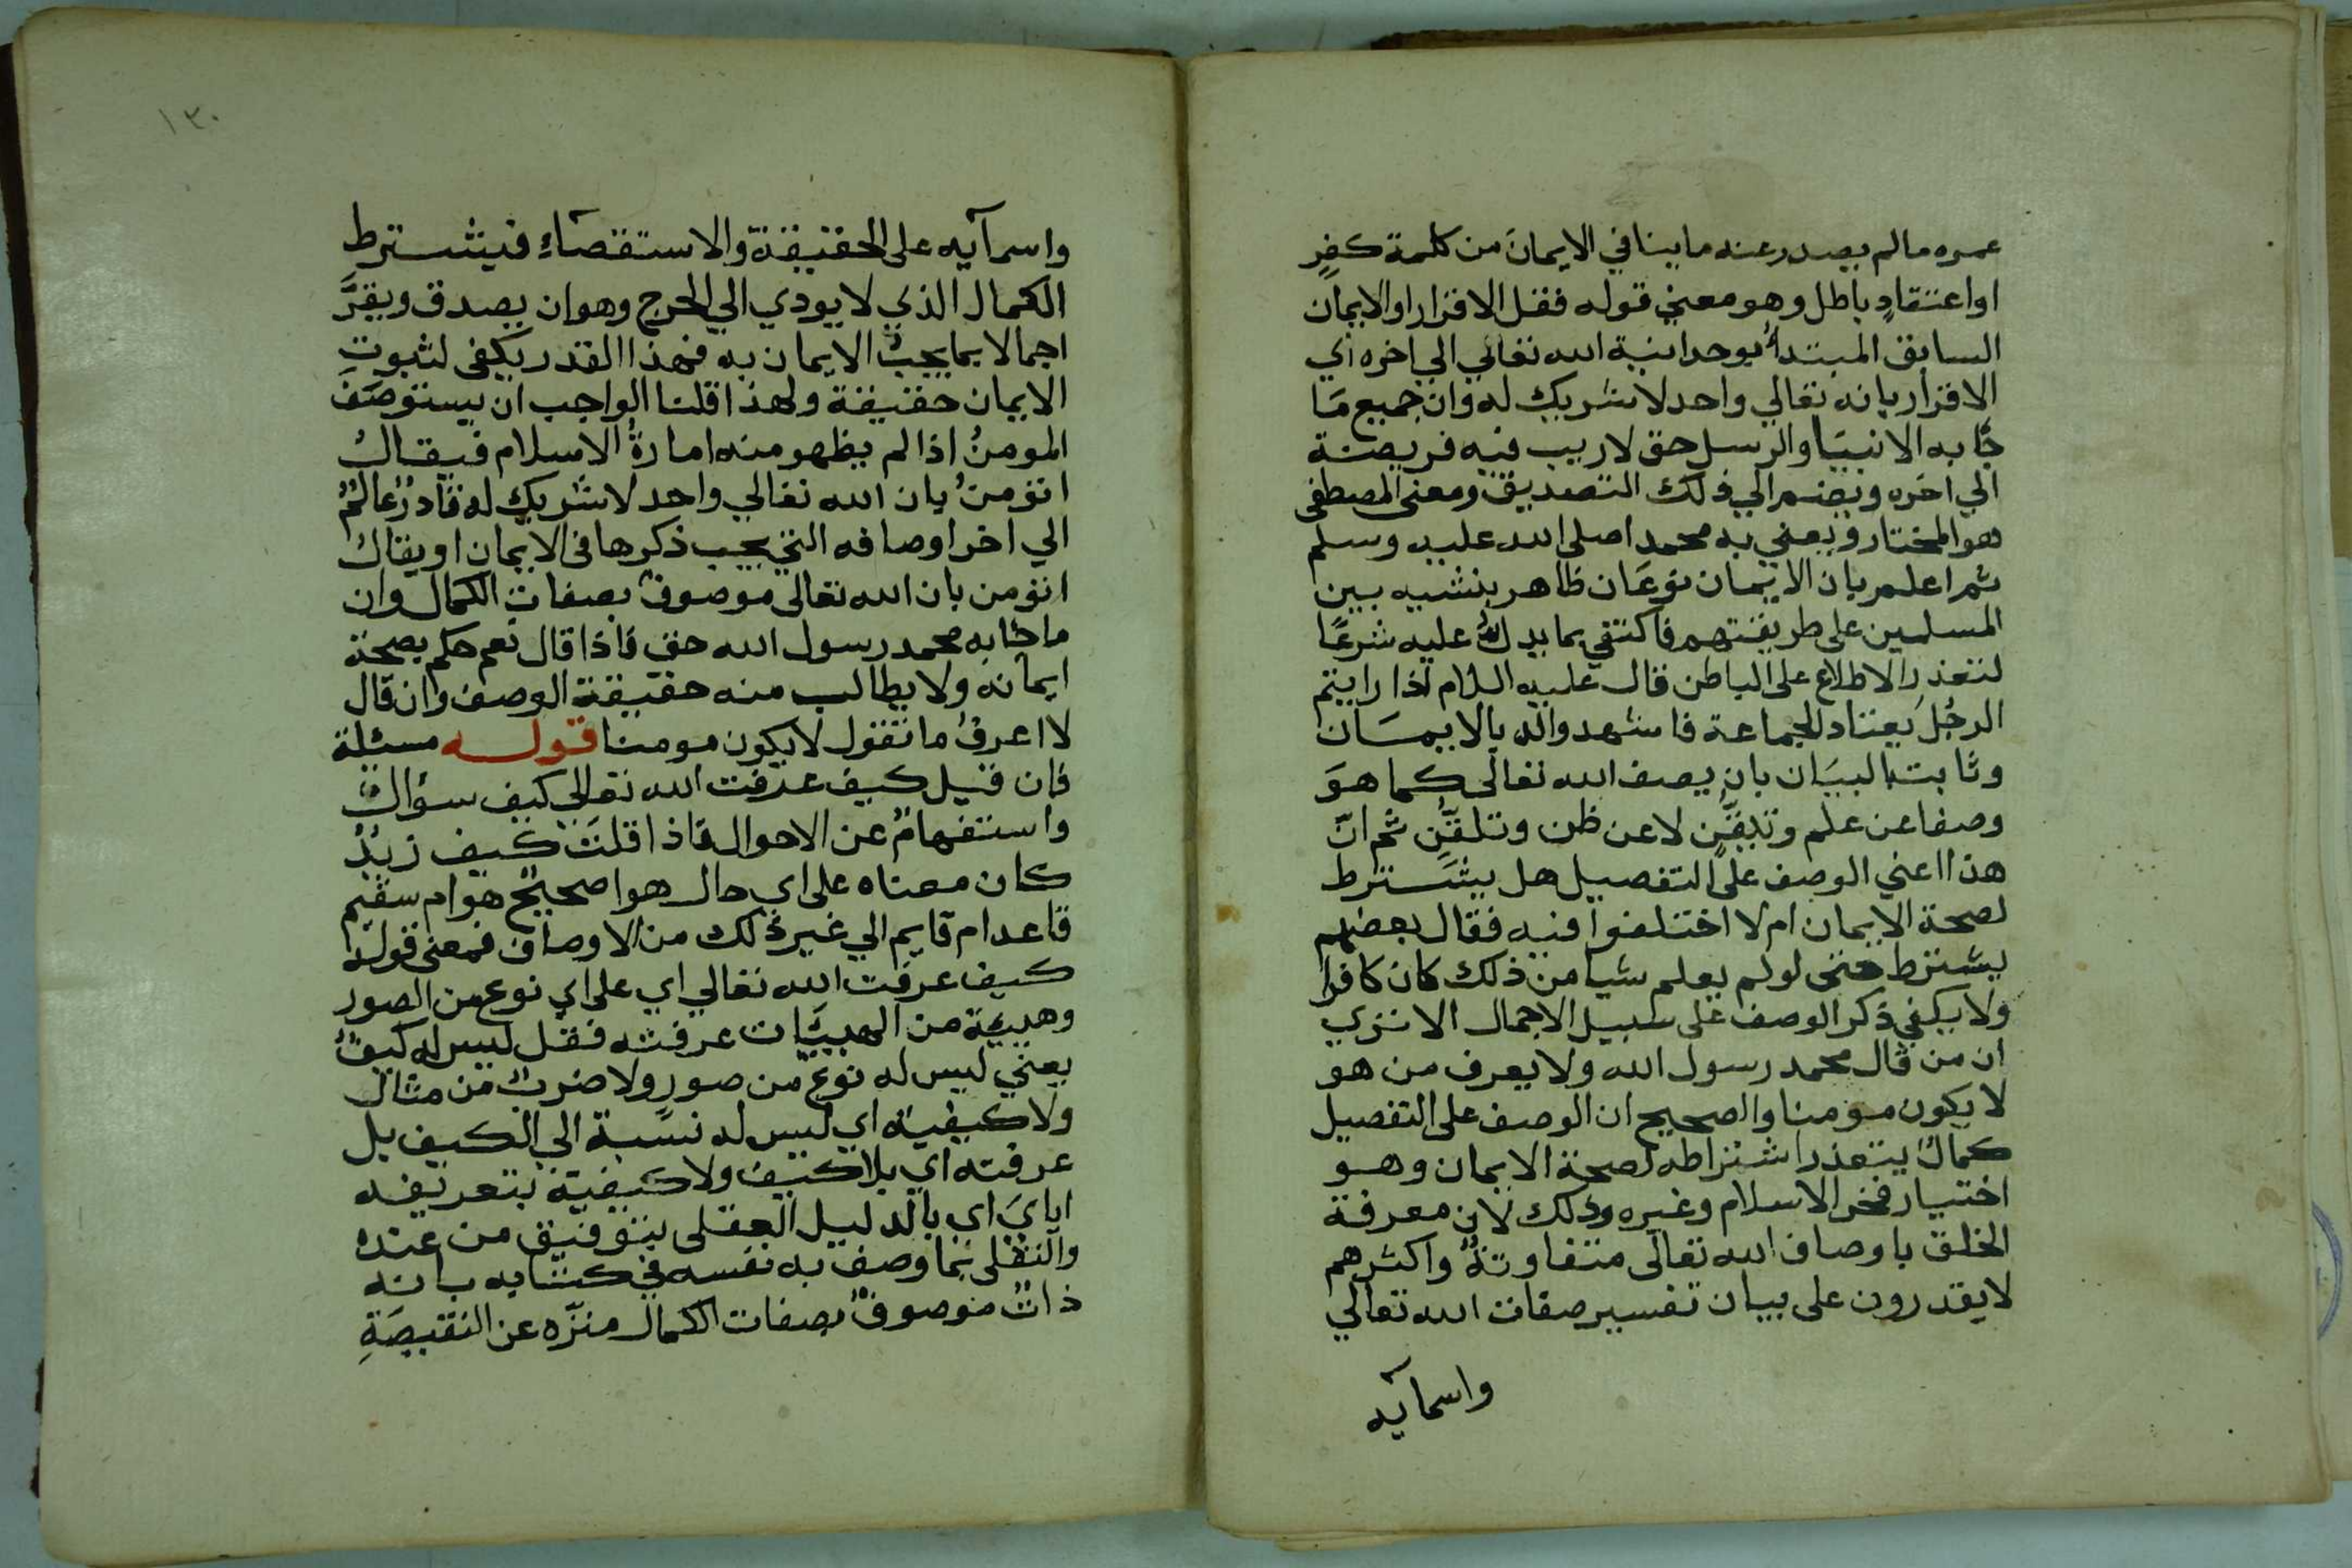 عمره مالم يصدر عنه ما ينافي الايمان من كلمة كفر
او اعتقادٍ باطل وهو معني قوله فقل الاقرار او الايمان
السابق المبتدأ بوحدانية الله تعالي الي اخره أي
الاقرار بانه تعالي واحد لا شريك له وان جميع مَا
جَا به الانبيَا والرسل حق لاريب فيه فريضة
الي اخره ويضم الي ذلك التصديق ومعني المصطفى
هو المختار ويعني به محمدا صلى الله عليه وسلم
ثم اعلم بان الايمان نوعَان ظاهر بنشيه بين
المسلمين على طريقتهم فاكتفي بما يدلُّ عليه شرعًا
لتعذر الاطلاع على الباطن قال عليه السلام اذا رايتم
الرجُل يعتاد الجماعة فاشهدوا له بالايمسَان
وثابت بالبيَان بان يصف الله تعالى كما هوَ
وصفا عن علم وتيقُّنٍ لا عن ظن وتلقُّنٍ ثم انّ
هذا اعني الوصف على التفصيل هل يشترط
لصحة الايمان ام لا اختلفوا فيه فقال بعضهم
يشترط حتى لو لم يعلم شيا من ذلك كان كافرا
ولا يكفي ذكر الوصف على سبيل الاجمال الا تري
ان من قال محمد رسول الله ولا يعرف من هو
لا يكون مومنا والصحيح ان الوصف على التفصيل
كمالٌ يتعذر اشتراطه لصحة الايمان وهو
اختيار فخر الاسلام وغيره وذلك لان معرفة
الخلق باوصاف الله تعالى متفاوتةٌ واكثرهم
لا يقدرون على بيان تفسير صفات الله تعالي
واسمآيه
١٣٠
واسمآيه على الحقيقة والاستقصَآءِ فيشترط
الكمال الذي لا يودي الي الحرج وهو ان يصدق ويقرَّ
اجمالا بما يجبُ الايمان به فهذا القدر يكفى لثبوت
الايمان حقيقة ولهذا قلنا الواجب ان يستوصَفَ
المومنُ اذا لم يظهر منه امارةُ الاسلام فيقالُ
اتؤمنُ بان الله تعالي واحد لا شريك له قادرٌ عالمٌ
الي اخر اوصافه التي يجب ذكرها في الايمان او يقال
اتؤمن بان الله تعالى موصوف بصفات الكمال وان
ما جَا به محمد رسول الله حق فاذا قال نعم حكم بصحة
ايمانه ولا يطالب منه حقيقة الوصف وان قال
لا اعرفُ ما تقول لا يكون مومنا قوله مسئلة
فان قيل كيف عرفت الله تعالي كيف سؤالٌ
واستفهامٌ عن الاحوال فاذا قلتَ كيف زيدٌ
كان معناه على اي حال هو اصحيحٌ هو ام سقيم
قاعد ام قايم الي غير ذلك من الاوصاف فمعنى قوله
كيف عرفت الله تعالي اي على اي نوع من الصور
وهيئة من الهييَّات عرفته فقل ليس له كيفٌ
يعني ليس له نوع من صورٍ ولا ضربٌ من مثال
ولا كيفية اي ليس له نسبة الي الكيف بل
عرفته اي بلا كيف ولا كيفية بتعريفه
ايايَ اي بالدليل العقلى بتوفيق من عنده
والنقلى بما وصف به نفسه في كتابه بانه
ذاتٌ موصوفٌ بصفات الكمال منزّه عن النقيصَةِ